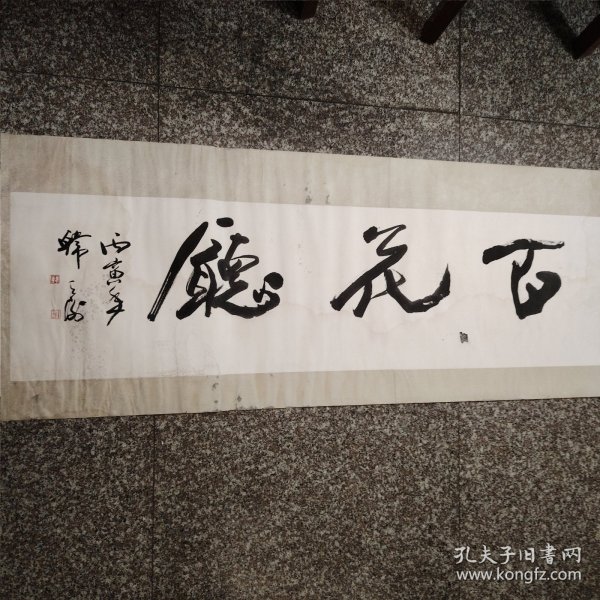 百花廳
丙寅年
韓
孔夫子旧書网
www.kongfz.com